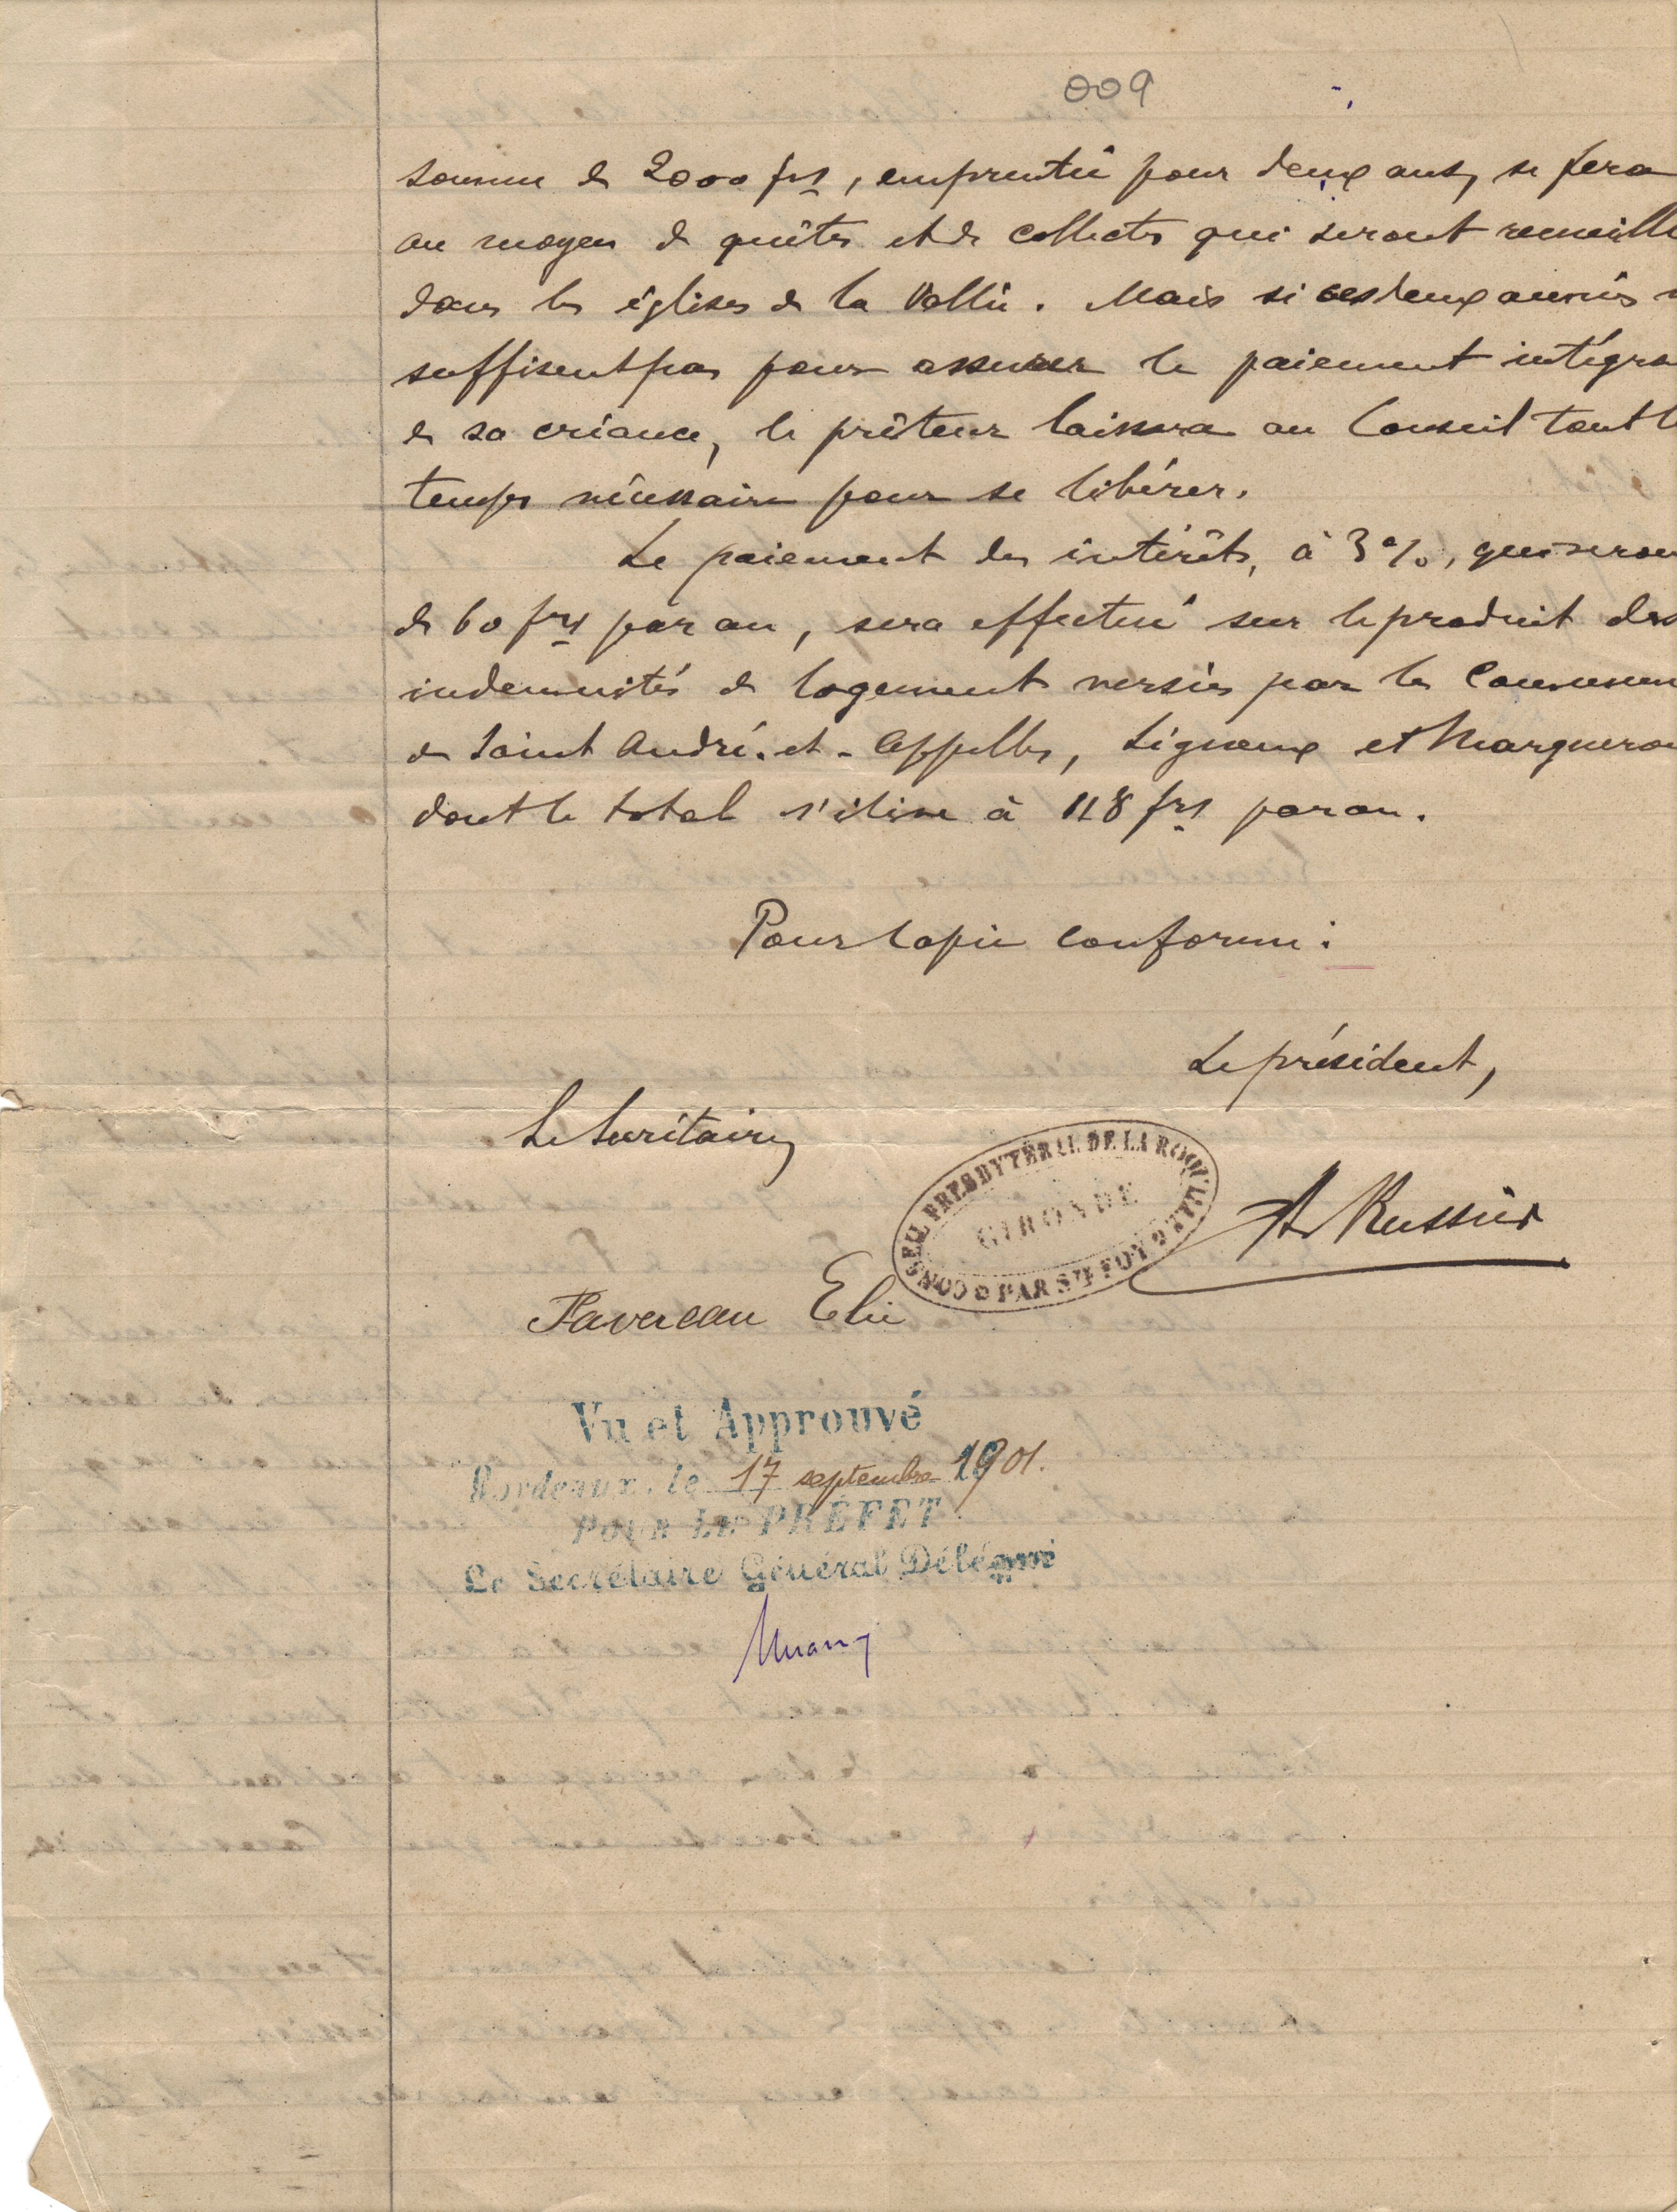 009
somme de 2000 frs, empruntée pour deux ans, se fera
au moyen de quêtes et de collectes qui seront recueillie
dans les églises de la Vallée. Mais si ces deux années n
suffisent pas pour assurer le paiement intégra
de sa créance, le prêteur laissera au Conseil tout l
temps nécessaire pour se libérer.
Le paiement des intérêts, à 3%, qui seron
de 60 frs par an, sera effectué sur le produit des
indemnités de logement versées par les Commun
de Saint André-et-Appelles, Ligneux et Margueron
dont le total s'élève à 118 frs par an.
Pour Copie conforme :
Le président,
Le Secrétaire,
CONSEIL PRESBYTÉRAL DE LA ROQUILLE
GIRONDE
PAR STE FOY
A. Russier
Favereau Elie
Vu et Approuvé
Bordeaux, le 17 septembre 1901.
POUR LE PRÉFET
Le Secrétaire Général Délégué